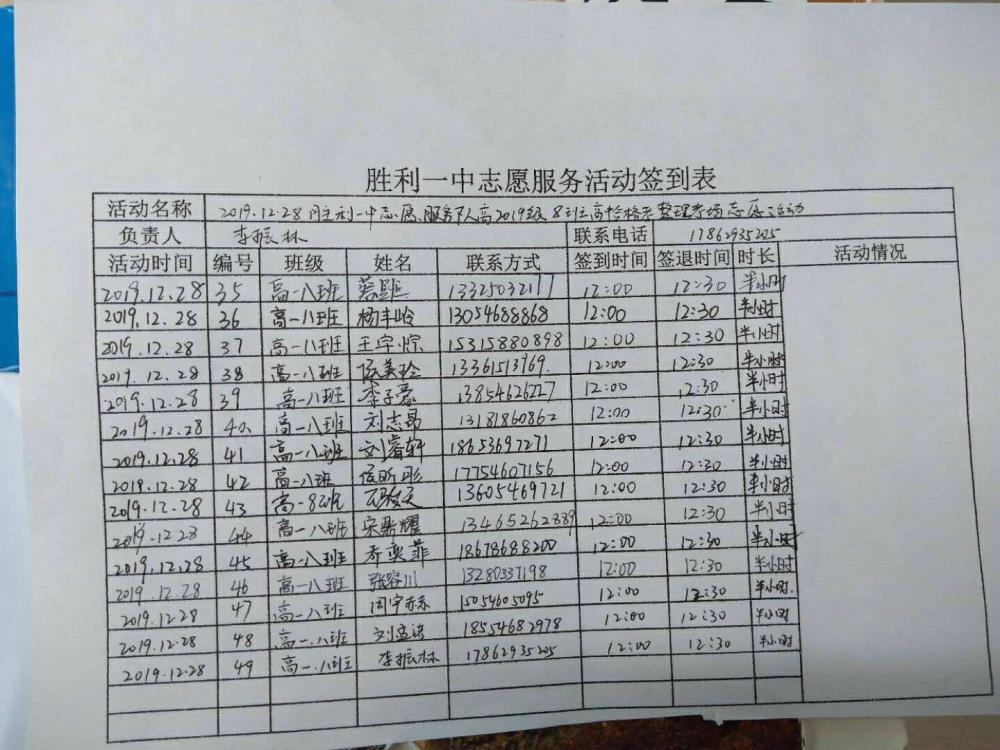 胜利一中志愿服务活动签到表
活动名称 2019.12.28 胜利一中志愿服务队高2019级8班 整理考场志愿活动
负责人 李振林 联系电话 17862935205
活动时间 编号 班级 姓名 联系方式 签到时间 签退时间 时长 活动情况
2019.12.28 35 高一八班 13325032177 12:00 12:30 半小时
2019.12.28 36 高一八班 杨丰岭 13054688868 12:00 12:30 半小时
2019.12.28 37 高一八班 王宇 15315880898 12:00 12:30 半小时
2019.12.28 38 高一八班 美玲 13361513769 12:00 12:30 半小时
2019.12.28 39 高一八班 李子豪 13854626727 12:00 12:30 半小时
2019.12.28 40 高一八班 刘志昂 13181860862 12:00 12:30 半小时
2019.12.28 41 高一八班 刘睿轩 18653697271 12:00 12:30 半小时
2019.12.28 42 高一八班 侯昕彤 17754607156 12:00 12:30 半小时
2019.12.28 43 高一8班 13605469721 12:00 12:30 半小时
2019.12.28 44 高一八班 宋鼎耀 13465262889 12:00 12:30 半小时
2019.12.28 45 高一八班 乔奕菲 18678688200 12:00 12:30 半小时
2019.12.28 46 高一八班 张容川 13280337198 12:00 12:30 半小时
2019.12.28 47 高一八班 周宇 15054605095 12:00 12:30 半小时
2019.12.28 48 高一八班 刘孟 18554682978 12:00 12:30 半小时
2019.12.28 49 高一八班 李振林 17862935205 12:00 12:30 半小时